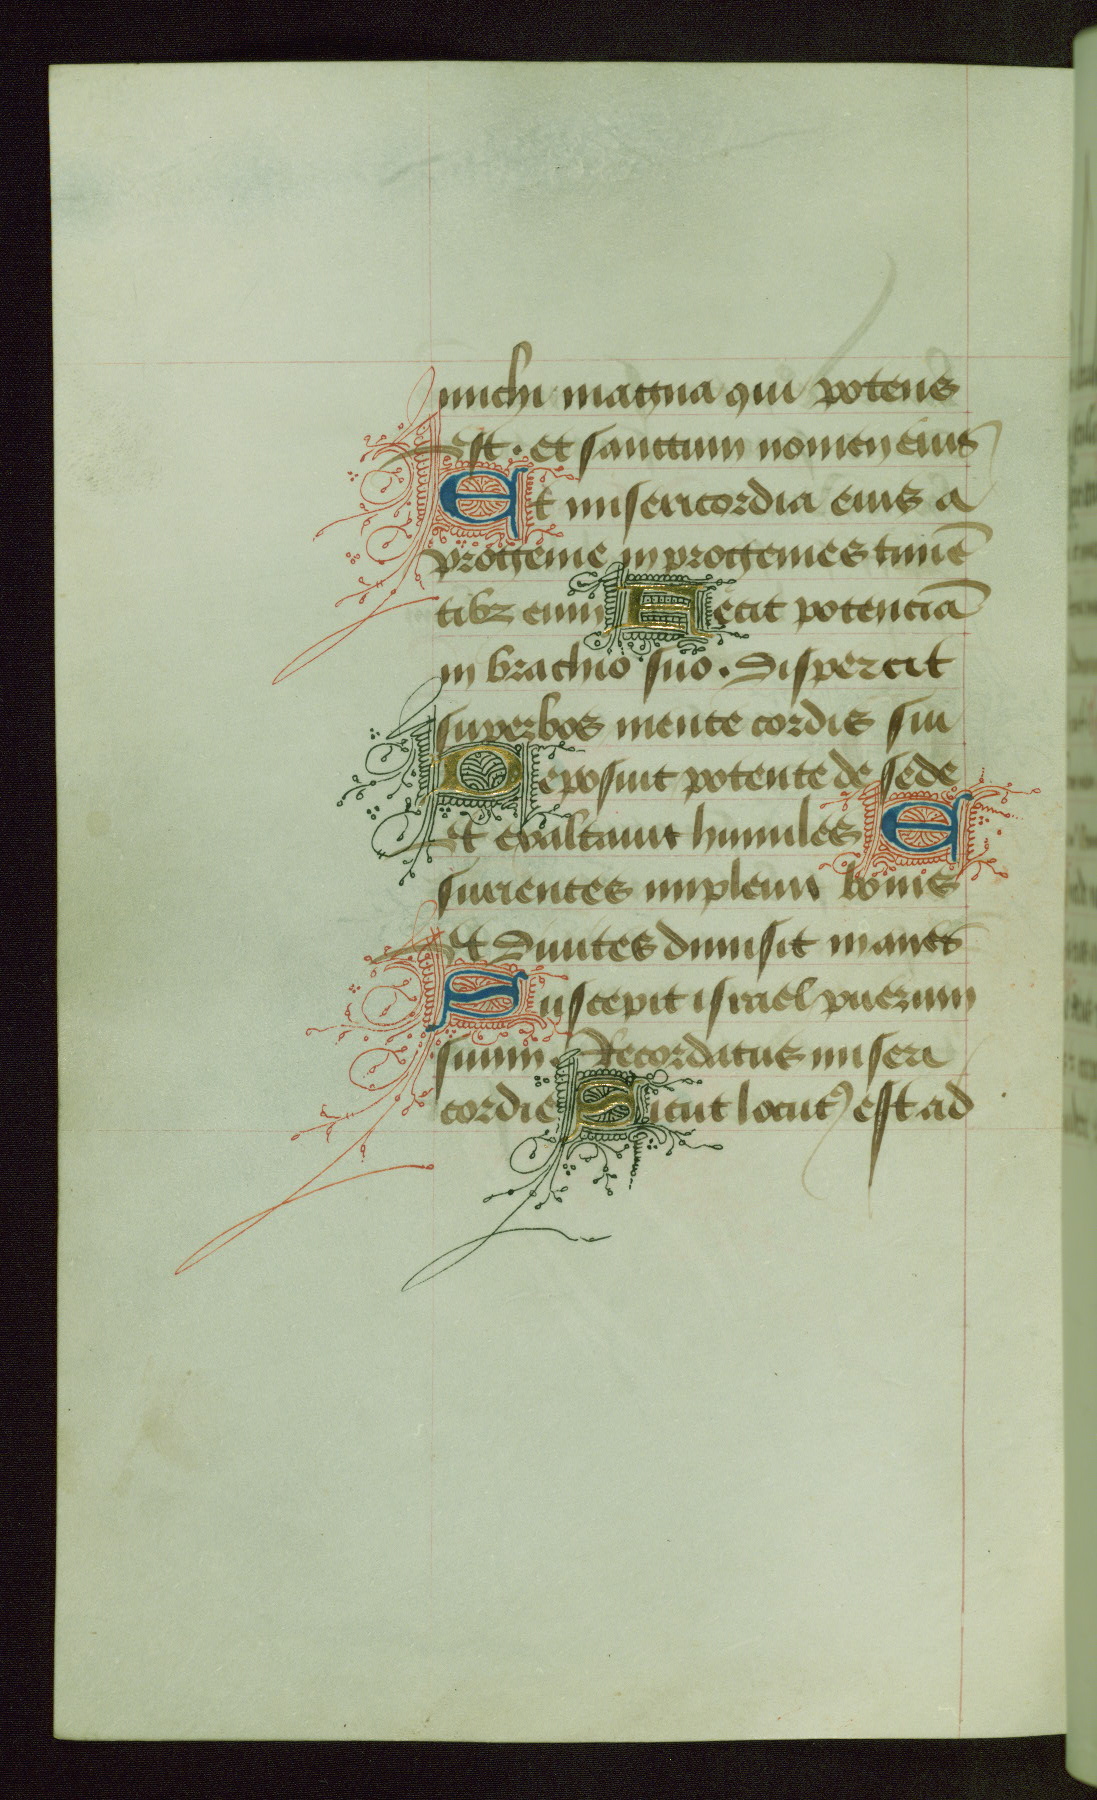 michi magna qui potens
est · et sanctum nomen eius
Et misericordia eius a
progenie in progenies timē
tibz eum Fecit potenciā
in brachio suo . Dispercit
superbos mente cordis sui
Deposuit potente de sede
et exaltauit humiles E
surientes impleuit bonis
Et Diuites dimisit inanes
Suscepit israel puerum
suum . Recordatus miseri
cordie Sicut locutꝰ est ad